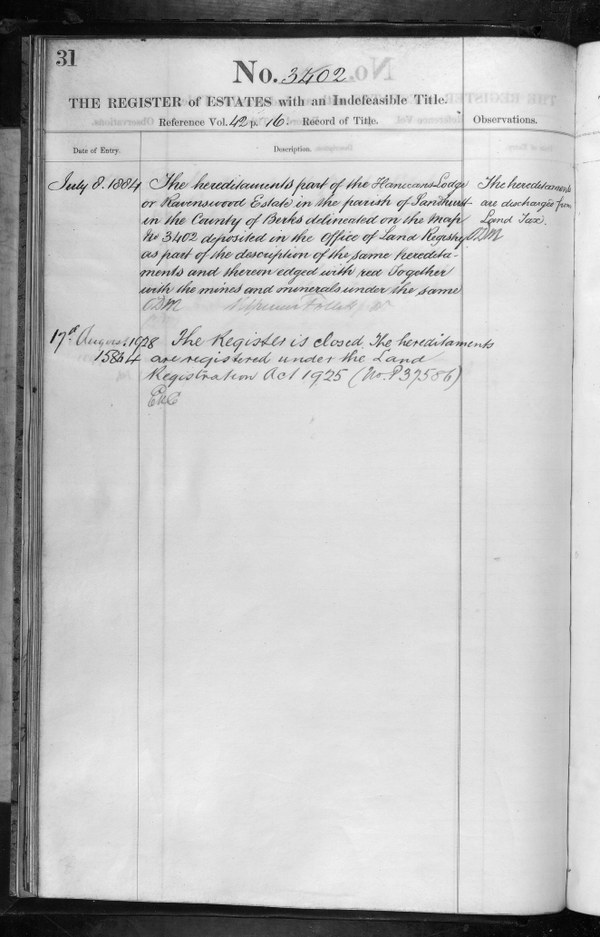 31
No. 3402
THE REGISTER of ESTATES with an Indefeasible Title.
Reference Vol. 42 p. 16. Record of Title.
Observations.
Date of Entry.
Description.
July 8. 1884
The hereditaments part of the Hanicans Lodge
or Ravenswood Estate in the parish of Sandhurst
in the County of Berks delineated on the Map
No 3402 deposited in the Office of Land Registry
as part of the description of the same heredita-
ments and thereon edged with red Together
with the mines and minerals under the same
The hereditaments
are discharged from
Land Tax.
17th August 1928
The Register is closed The hereditaments
are registered under the Land
Registration Act 1925 (No. P37586)